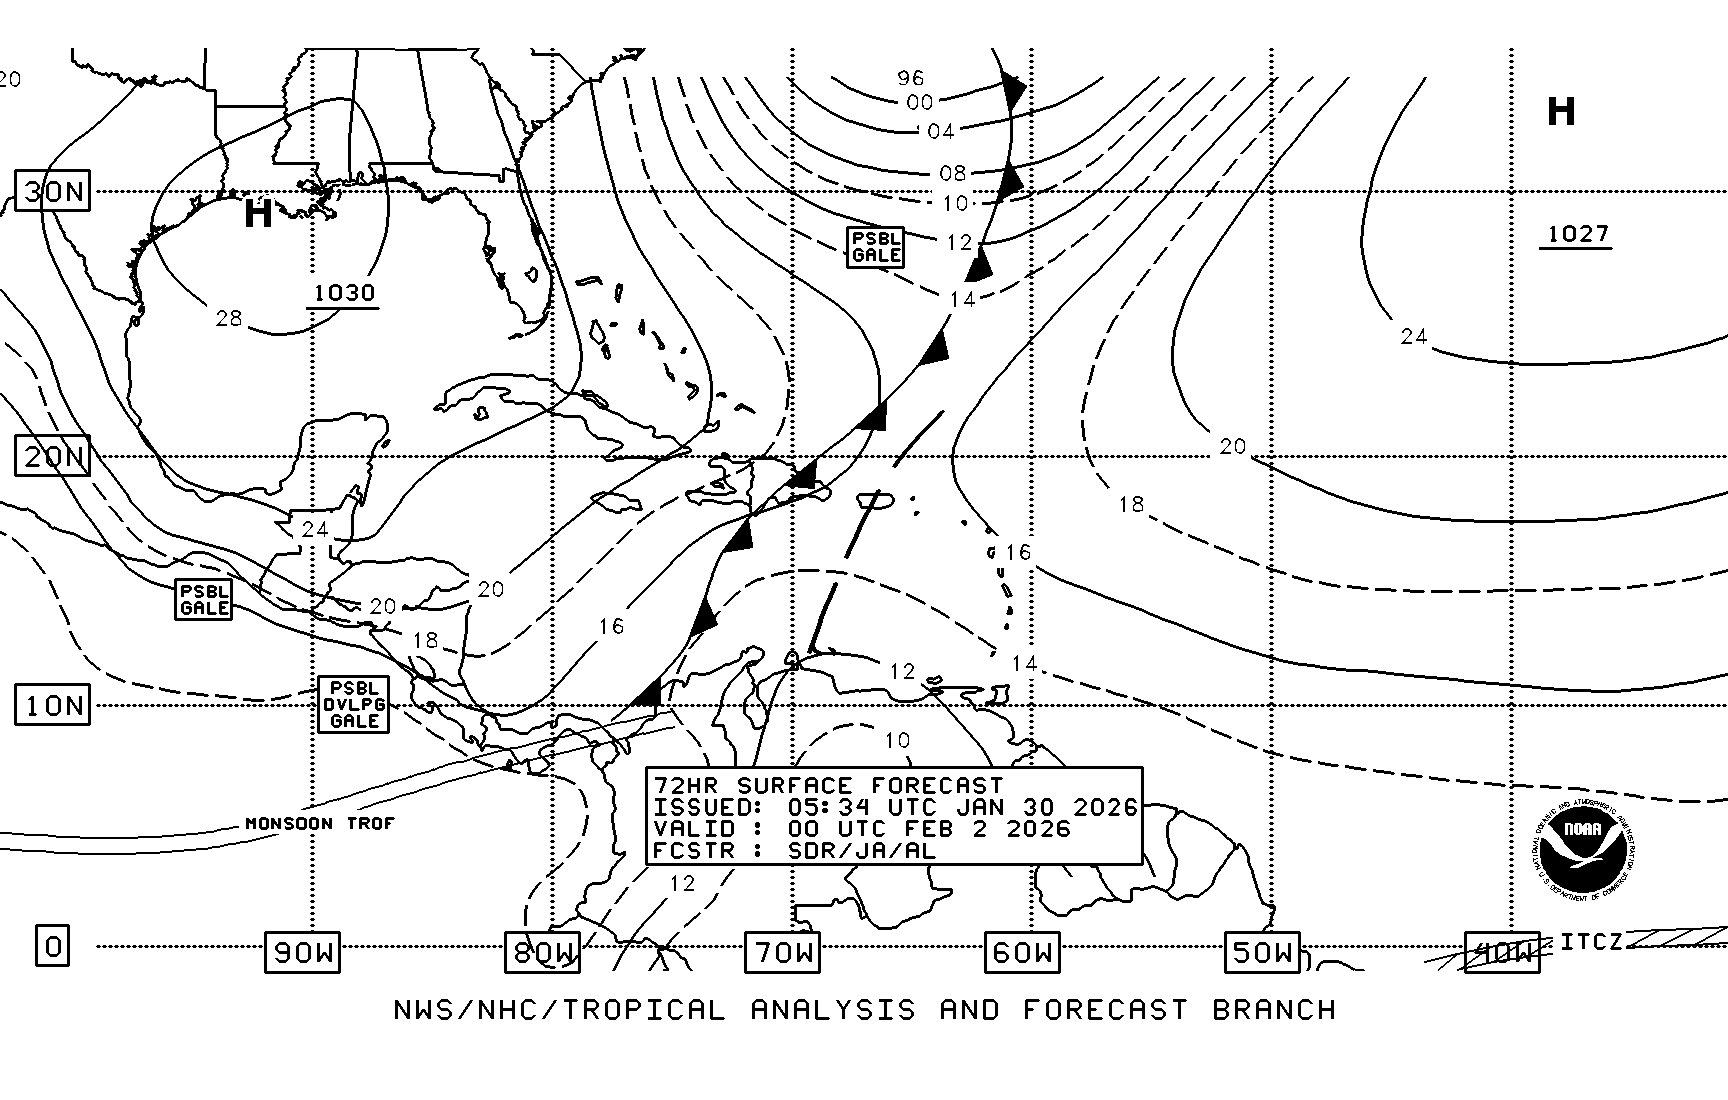 20
96
00
04
H
08
30N
10
H
12
PSBL
GALE
1027
1030
14
28
24
20N
20
18
24
16
PSBL
GALE
20
20
16
18
14
12
10N
PSBL
DVLPG
GALE
10
72HR SURFACE FORECAST
ISSUED: 05:34 UTC JAN 30 2026
VALID : 00 UTC FEB 2 2026
FCSTR : SDR/JA/AL
MONSOON TROF
NATIONAL OCEANIC AND ATMOSPHERIC ADMINISTRATION
NOAA
U.S. DEPARTMENT OF COMMERCE
12
0
90W
80W
70W
60W
50W
40W
ITCZ
NWS/NHC/TROPICAL ANALYSIS AND FORECAST BRANCH